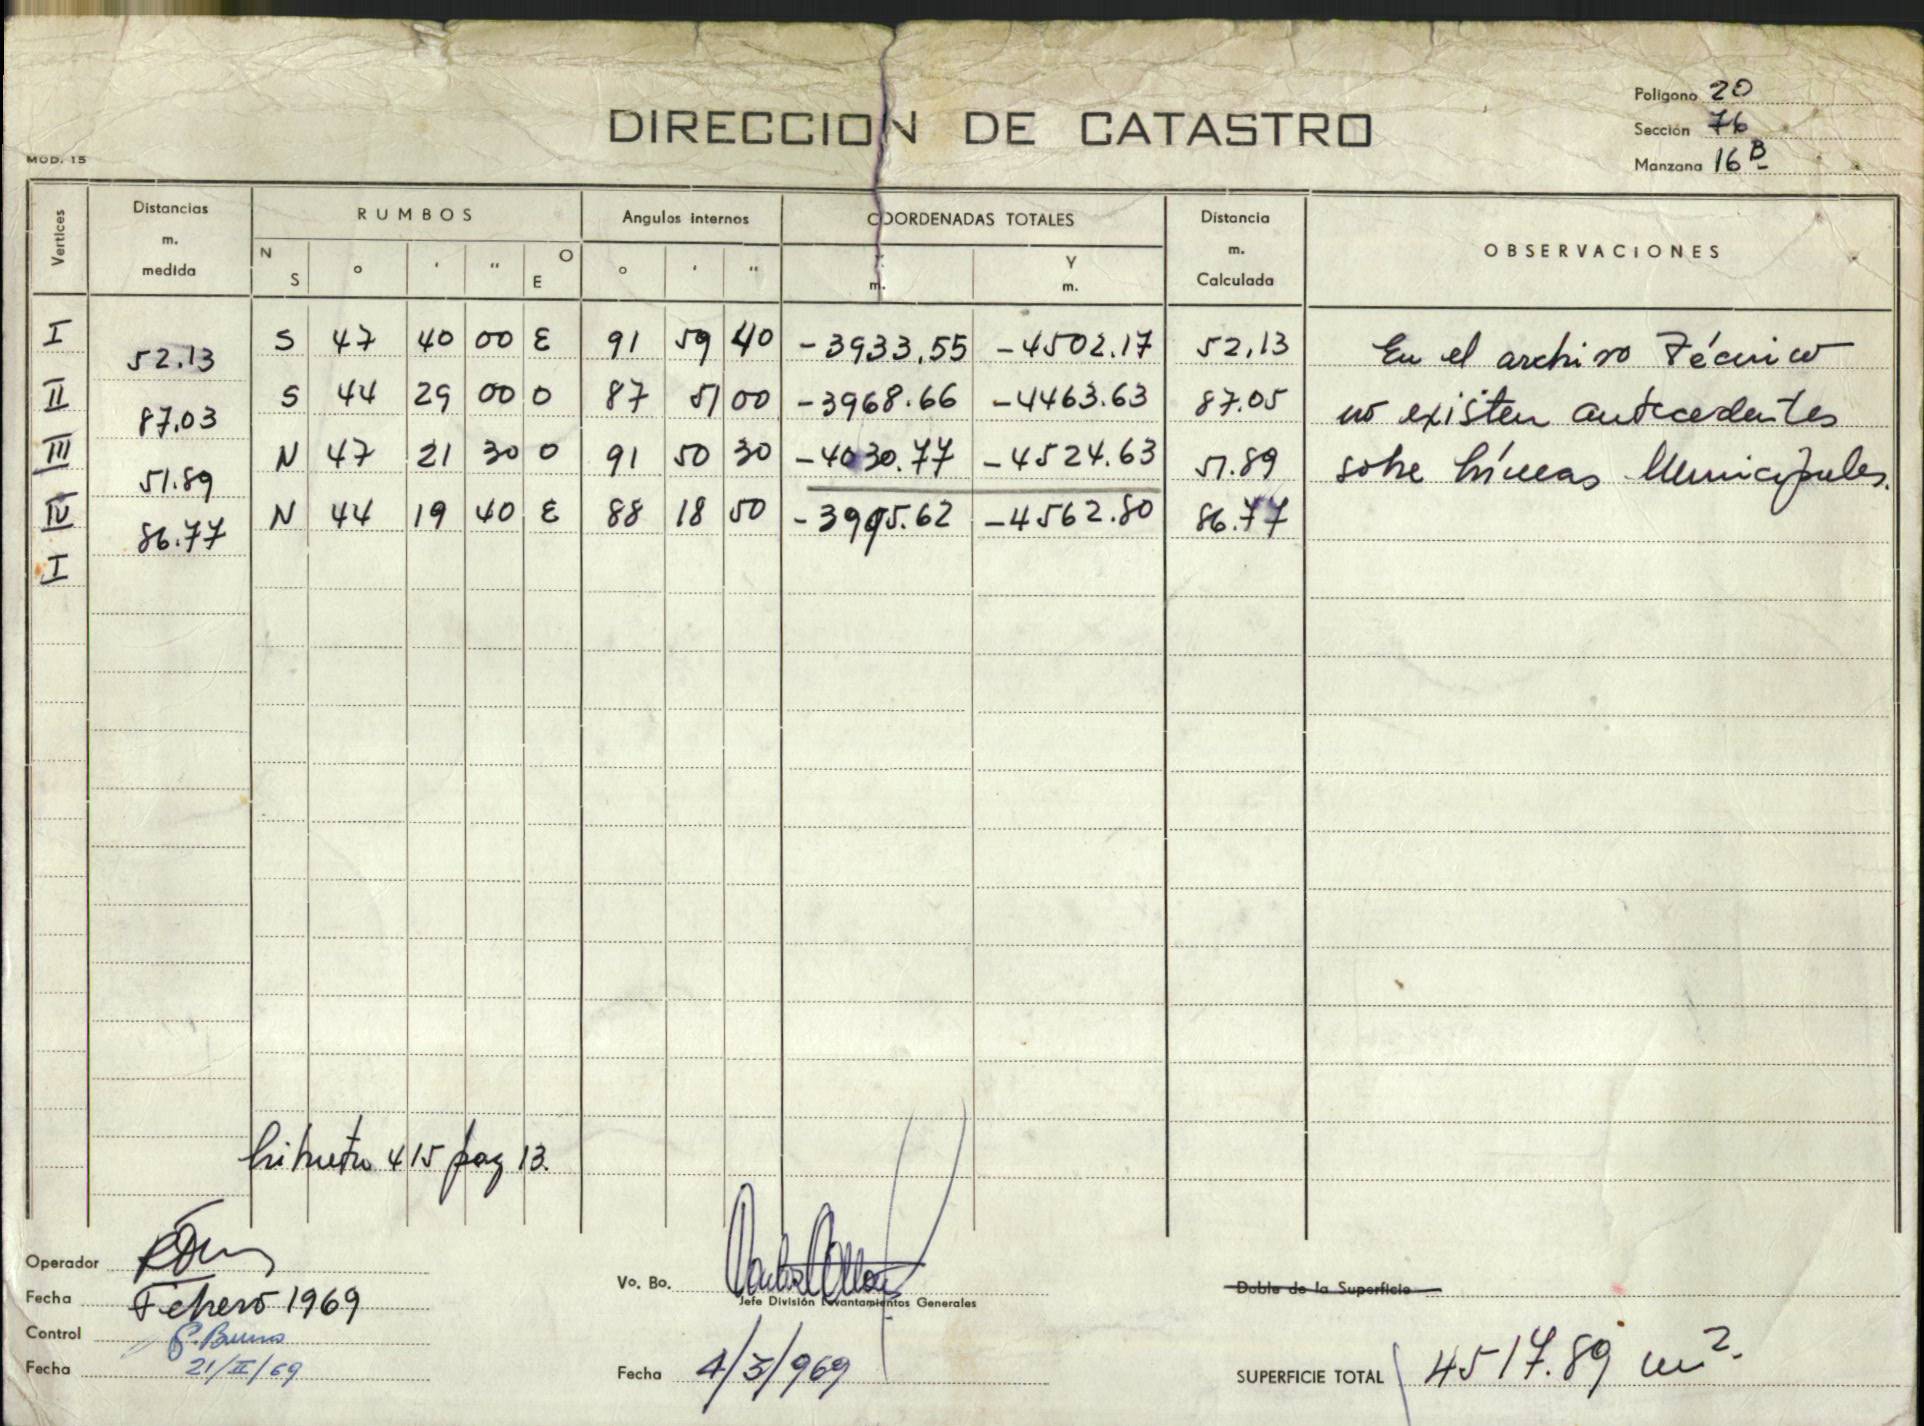 Poligono 20
DIRECCION DE CATASTRO
Sección 76
MOD. 15
Manzana 16 B
Vertices
Distancias m. medida
RUMBOS
Angulos internos
COORDENADAS TOTALES
Distancia m. Calculada
OBSERVACIONES
N S ° ' " O E
° ' "
m.
Y m.
I S 47 40 00 E 91 59 40 -3933.55 -4502.17 52.13 En el archivo Técnico
52.13
II S 44 29 00 O 87 51 00 -3968.66 -4463.63 87.05 no existen antecedentes
87.03
III N 47 21 30 O 91 50 30 -4030.77 -4524.63 51.89 sobre Líneas Municipales.
51.89
IV N 44 19 40 E 88 18 50 -3995.62 -4562.80 86.77
86.77
I
415 pag 13.
Operador
Fecha Febrero 1969
Control
Fecha 21/II/69
Vo. Bo.
Jefe División Levantamientos Generales
Fecha 4/3/969
Doble de la Superficie
SUPERFICIE TOTAL 4517.89 m2.